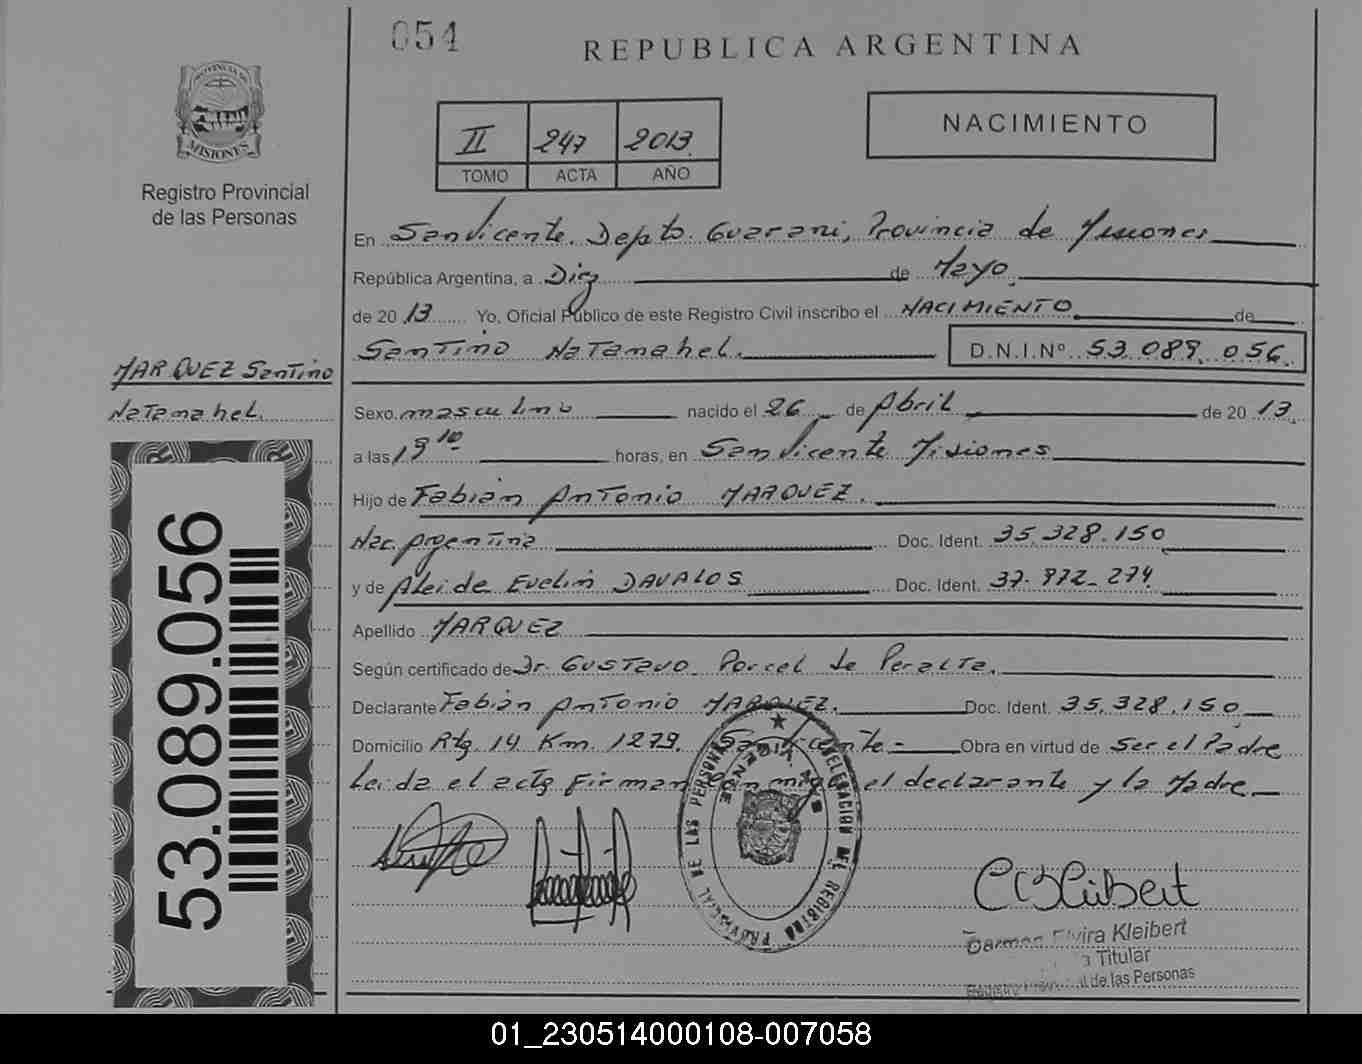 054
REPUBLICA ARGENTINA
PROVINCIA DE
MISIONES
Registro Provincial
de las Personas
II 247 2013
TOMO ACTA AÑO
NACIMIENTO
En San Vicente. Depto. Guarani, Provincia de Misiones
República Argentina, a Diez de Mayo
de 20 13 Yo, Oficial Público de este Registro Civil inscribo el NACIMIENTO de
Santino Natanahel. D.N.I.Nº 53.089.056
MARQUEZ Santino
Natanahel.
Sexo masculino nacido el 26 de Abril de 20 13
a las 19 10 horas, en San Vicente Misiones
Hijo de Fabián Antonio MARQUEZ.
Nac. Argentina Doc. Ident. 35.328.150
y de Aleide Evelin DAVALOS Doc. Ident. 37.972.274
Apellido MARQUEZ
Según certificado de Dr. Gustavo Porcel de Peralta.
Declarante Fabián Antonio MARQUEZ. Doc. Ident. 35.328.150
Domicilio Rta. 14 Km. 1279. San Vicente - Obra en virtud de Ser el Padre
Leida el acta firman el declarante y la Madre
53.089.056
PROVINCIAL DE LAS PERSONAS
DELEGACION DEL REGISTRO
SAN VICENTE
Carmen Elvira Kleibert
Titular
Registro Provincial de las Personas
01_230514000108-007058